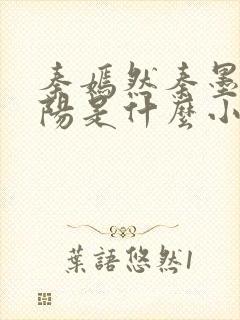 秦嫣然秦墨
陽是什麼小
葉語悠然1